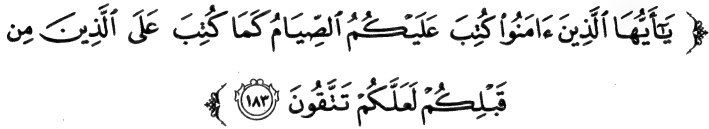 ﴿ يَٰٓأَيُّهَا ٱلَّذِينَ ءَامَنُواْ كُتِبَ عَلَيۡكُمُ ٱلصِّيَامُ كَمَا كُتِبَ عَلَى ٱلَّذِينَ مِن
قَبۡلِكُمۡ لَعَلَّكُمۡ تَتَّقُونَ ١٨٣ ﴾